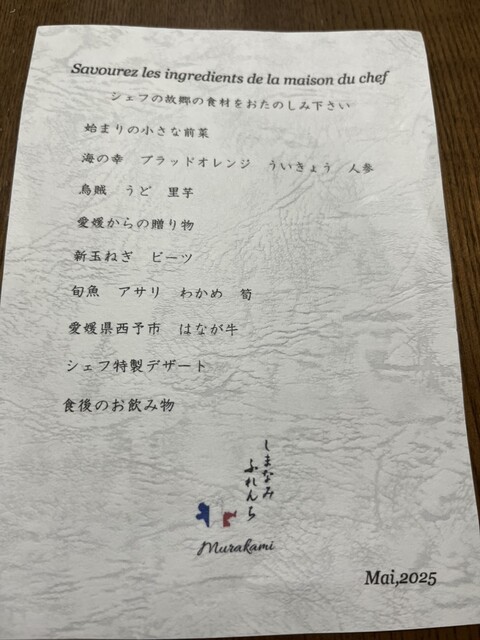 Savourez les ingredients de la maison du chef
シェフの故郷の食材をおたのしみ下さい
始まりの小さな前菜
海の幸　ブラッドオレンジ　ういきょう　人参
烏賊　うど　里芋
愛媛からの贈り物
新玉ねぎ　ビーツ
旬魚　アサリ　わかめ　筍
愛媛県西予市　はなが牛
シェフ特製デザート
食後のお飲み物
しまなみ
ふれんち
Murakami
Mai,2025